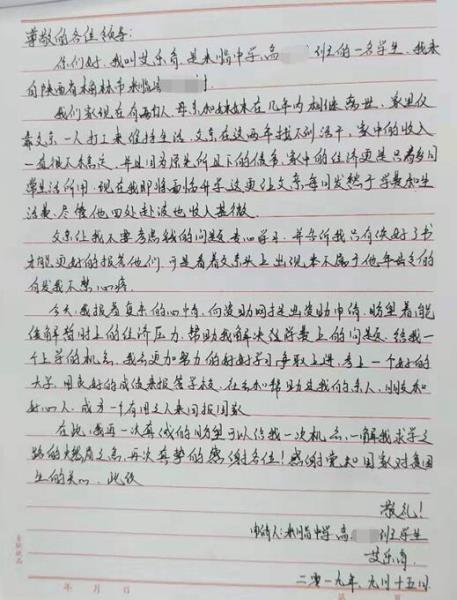 尊敬的各位领导:
你们好,我叫艾乐奇,是米脂中学高 班的一名学生,我来
自陕西省榆林市米脂县
我们家现在有两口人,母亲和妹妹在几年内相继离世,家里仅
靠父亲一人打工来维持生活,父亲在这两年找不到活干,家中的收入
一直很不稳定,并且因为原先所欠下的债务,家中的经济更是只有供日
常生活所用,现在我即将面临升学这更让父亲每日发愁于学费和生
活费,尽管他四处奔波也收入甚微。
父亲让我不要考虑钱的问题,专心学习,并告诉我只有供好了书
才能更好的报答他们,可是看着父亲头上出现本不属于他年龄段的
白发我不禁心痛。
今天,我报着复杂的心情,向资助网提出资助申请,盼望着能
缓解暂时上的经济压力,帮助我解决经学费上的问题,给我一
个上学的机会,我会更加努力的好好学习,争取上进,考上一个好的
大学,用良好的成绩来报答学校,社会和帮助过我的亲人,朋友和
好心人,成为一个有用之人来回报国家
在此,我再一次真诚的盼望可以给我一次机会,一解我求学之
路的燃眉之急,再次真挚的感谢各位!感谢党和国家对贫困
生的关心,此致
敬礼!
申请人:米脂中学高 班学生
艾乐奇
二零一九年 九月十五日
年 月 日